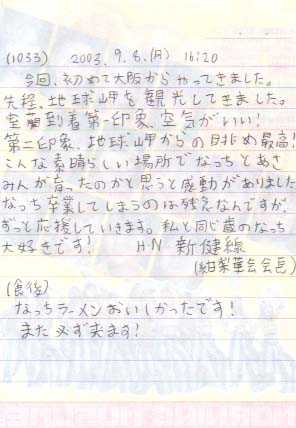 (1033) 2003.9.8.(月) 16:20
今回、初めて大阪からやってきました。
先程、地球岬を観光してきました。
室蘭到着第一印象、空気がいい!
第二印象、地球岬からの眺め最高!
こんな素晴らしい場所でなっちとあさ
みんが育ったのかと思うと感動がありました
なっち卒業してしまうのは残念なんですが、
ずっと応援していきます。私と同じ歳のなっち
大好きです! H・N 新健線
(紺梨華会会長)
(食後)
なっちラーメンおいしかったです!
また必ず来ます!